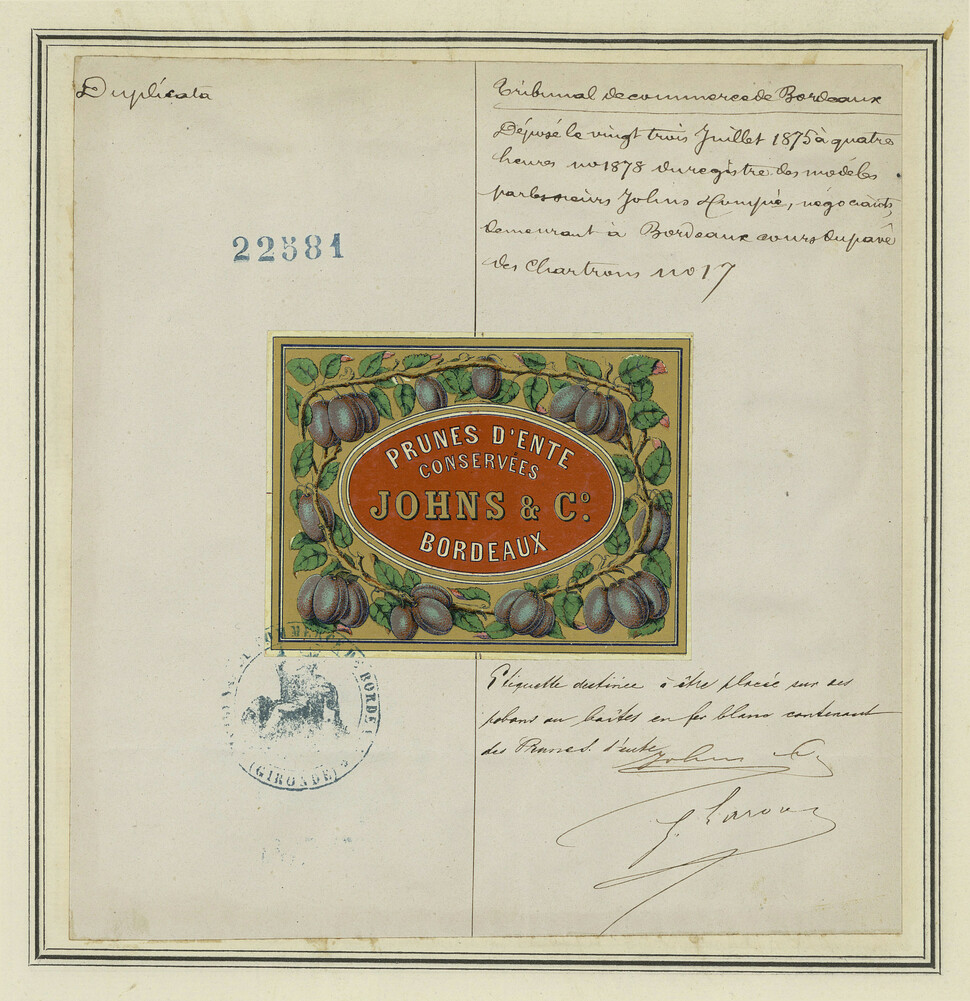 Duplicata
Tribunal de commerce de Bordeaux
Déposé le vingt trois Juillet 1875 à quatre
heures no 1878 du registre des modèles
par les sieurs Johns & Compie, négociants,
demeurant à Bordeaux cours du pavé
des Chartrons no 17
22581
PRUNES D'ENTE
CONSERVÉES
JOHNS & Co.
BORDEAUX
COMMERCE DE BORDE
(GIRONDE)
Etiquette destinée à être placée sur des
pobans ou boîtes en fer blanc contenant
des Prunes d'ente
Johns & Co